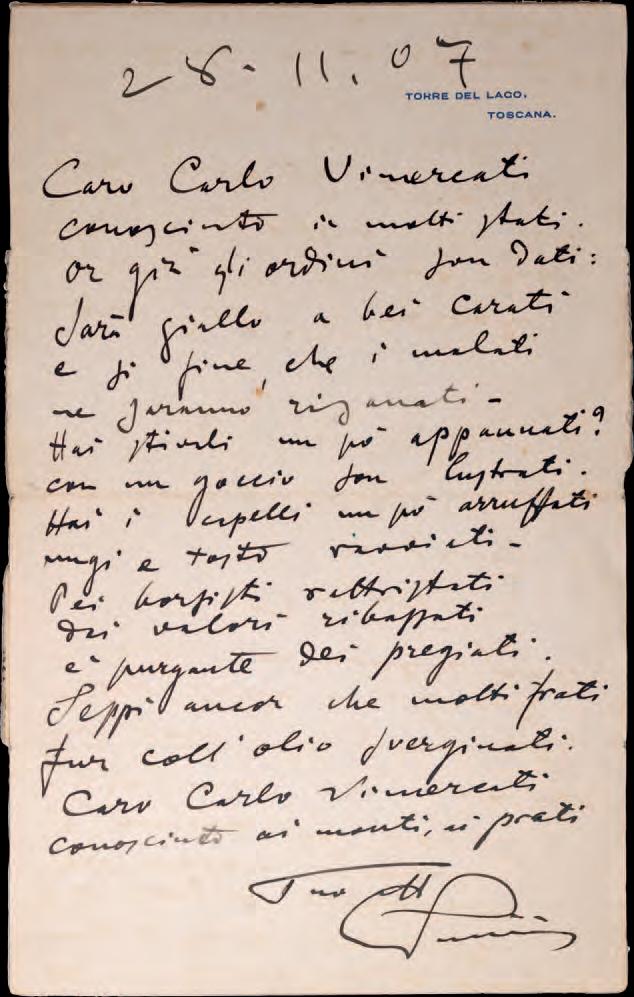 28.11.07
TORRE DEL LAGO.
TOSCANA.
Caro Carlo Vimercati
conosciuto in molti stati.
Or già gli ordini son dati:
Sarà giallo a bei carati
e sì fine, che i malati
ne saranno risanati -
Hai stivali un pò appannati?
con un goccio son lustrati.
Hai i capelli un pò arruffati
ungi e tosto ravviati -
Pei borsisti rattristati
dai valori ribassati
è purgante dei pregiati.
Seppi ancor che molti frati
fur coll'olio sverginati.
Caro Carlo Vimercati
conosciuto ai monti, ai prati
Tuo aff
Puccini